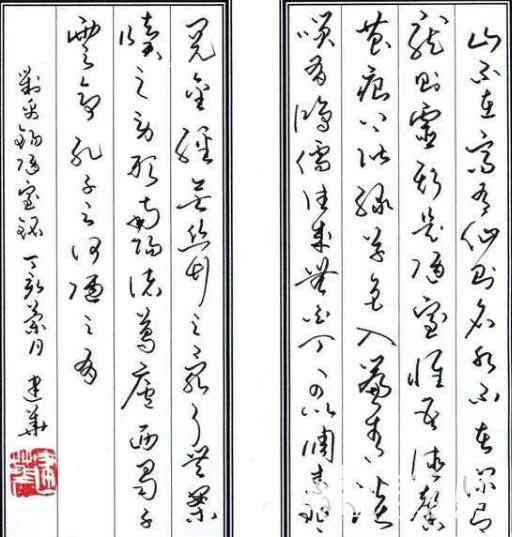 山不在高有仙則名水不在深有
龍則靈斯是陋室惟吾德馨
苔痕上階綠草色入簾青談
笑有鴻儒往來無白丁可以調素琴
閱金經無絲竹之亂耳無案
牘之勞形南陽諸葛廬西蜀子
雲亭孔子云何陋之有
劉禹錫陋室銘 丁亥 月 建華